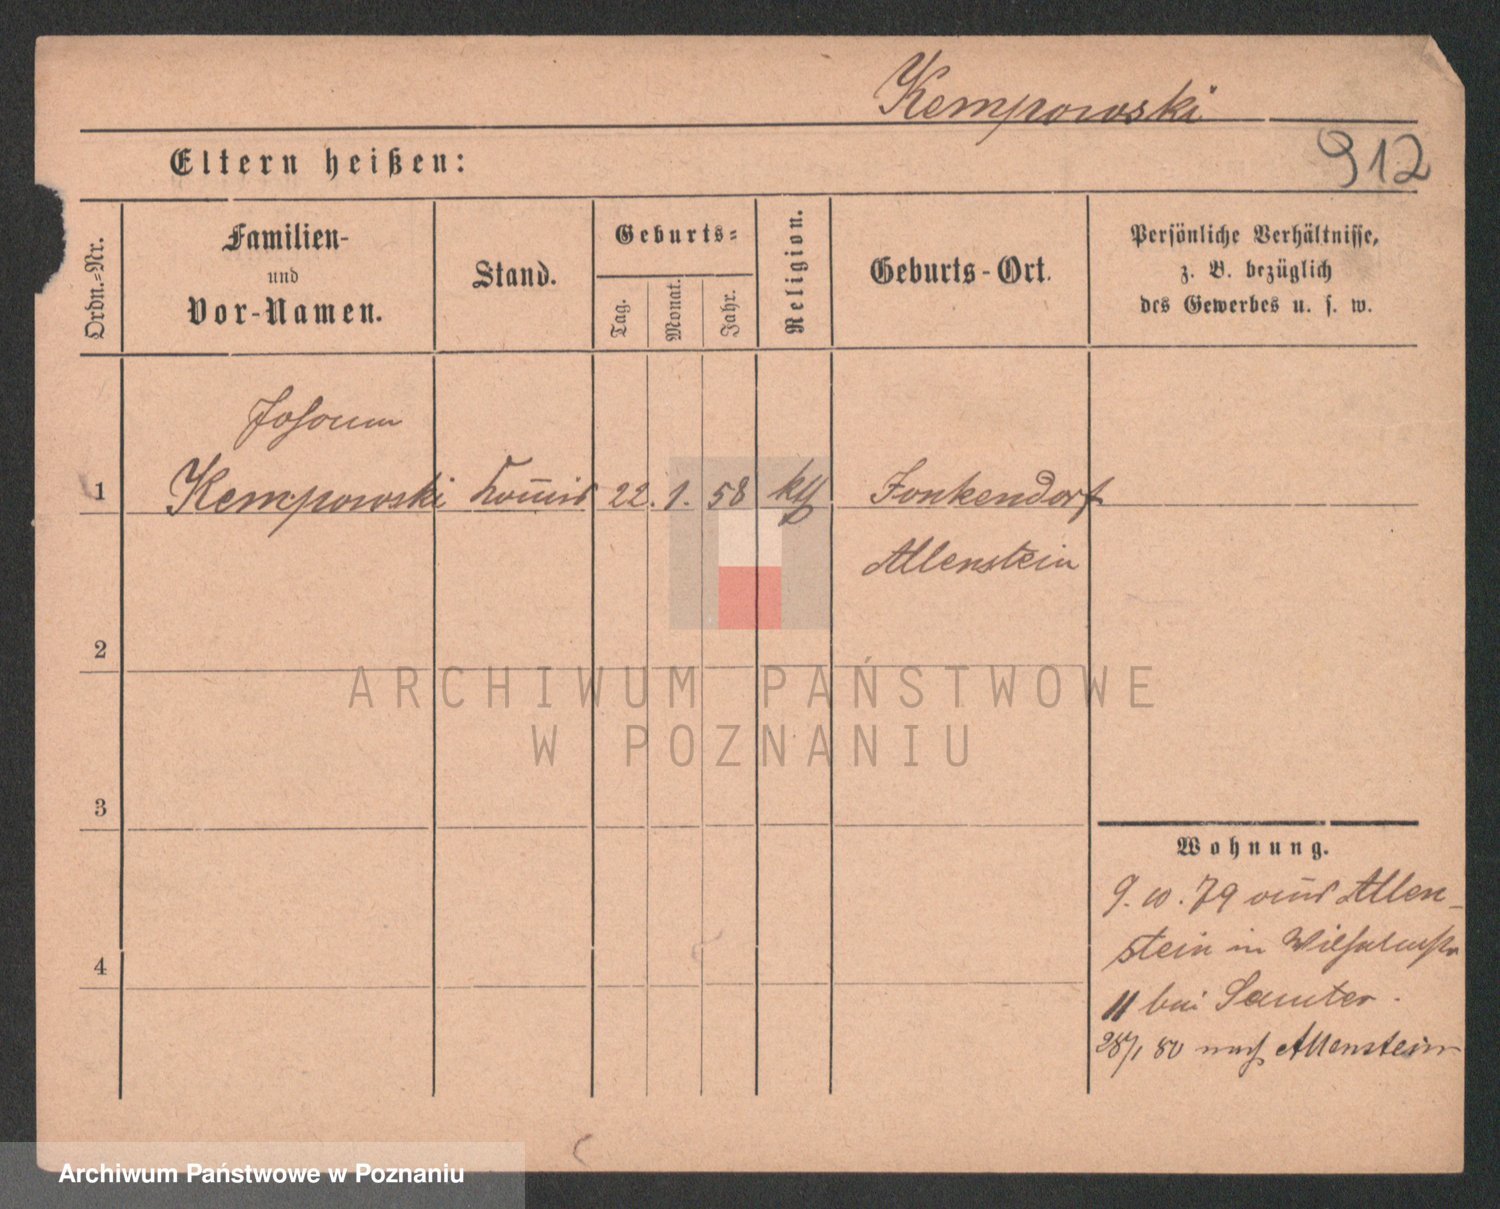 Kempowski
912
Eltern heißen:
Ordn.-Nr.
Familien-
und
Vor-Namen.
Stand.
Geburts-
Tag.
Monat.
Jahr.
Religion.
Geburts-Ort.
Persönliche Verhältnisse,
z. B. bezüglich
des Gewerbes u. s. w.
Johann
1 Kempowski Commis 22. 1. 58 kth Jonkendorf
Allenstein
2
ARCHIWUM PAŃSTWOWE
W POZNANIU
3
4
Wohnung.
9. 10. 79 aus Allen-
stein in Wilhelmstr
11 bei Samter.
28/1 80 nach Allenstein
Archiwum Państwowe w Poznaniu